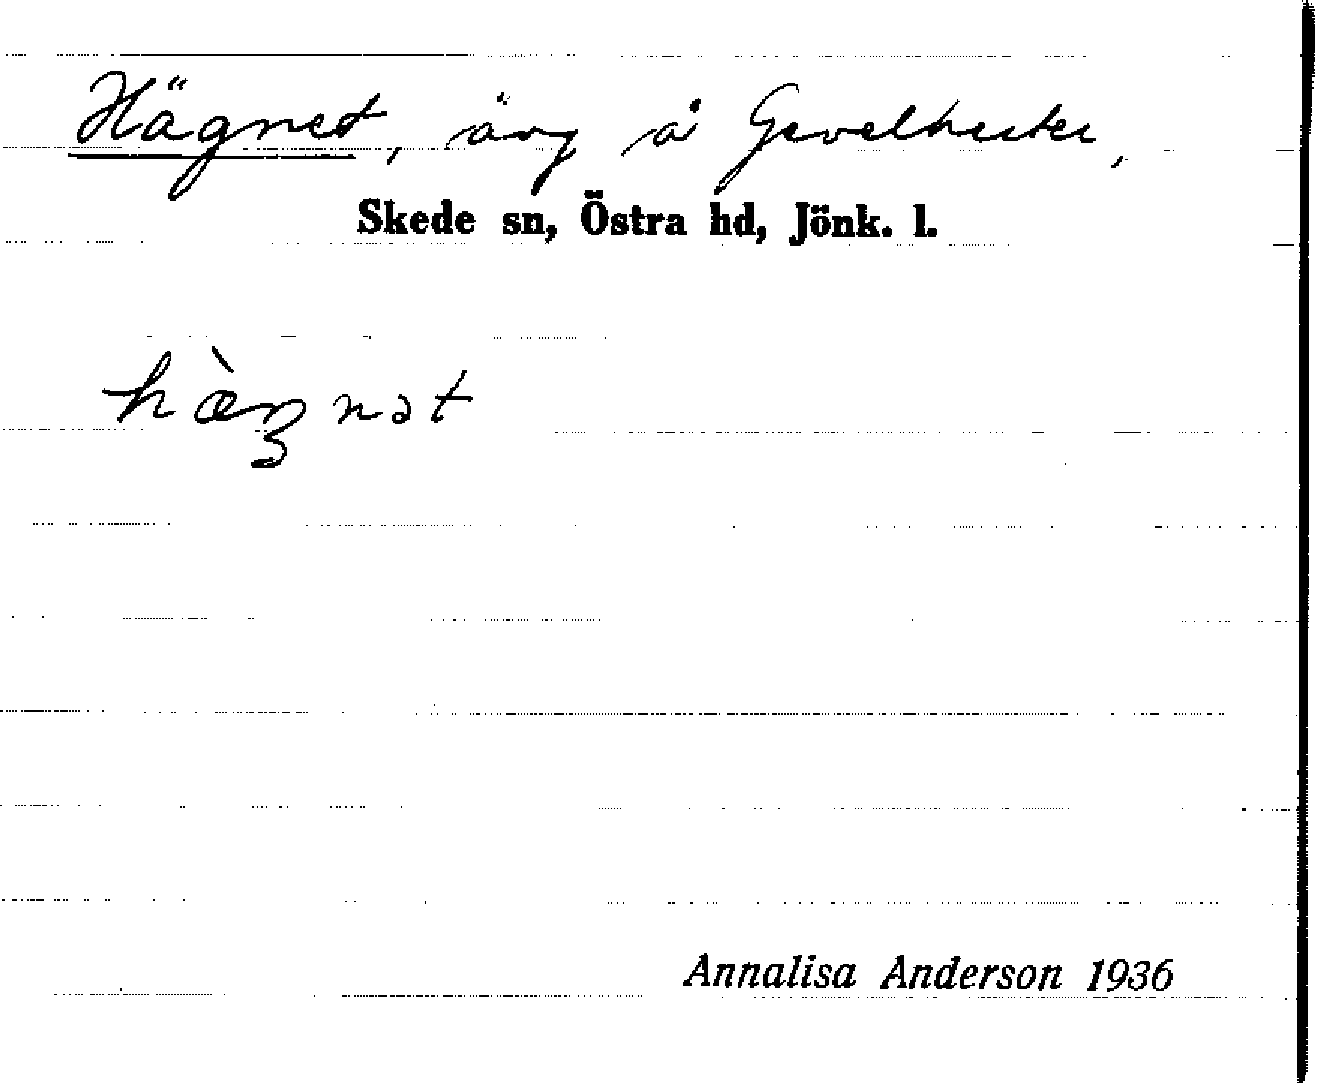 Hägnet, äng å Gevelhester,
Skede sn, Östra hd, Jönk. l.
hæ̀ŋnət
Annalisa Anderson 1936